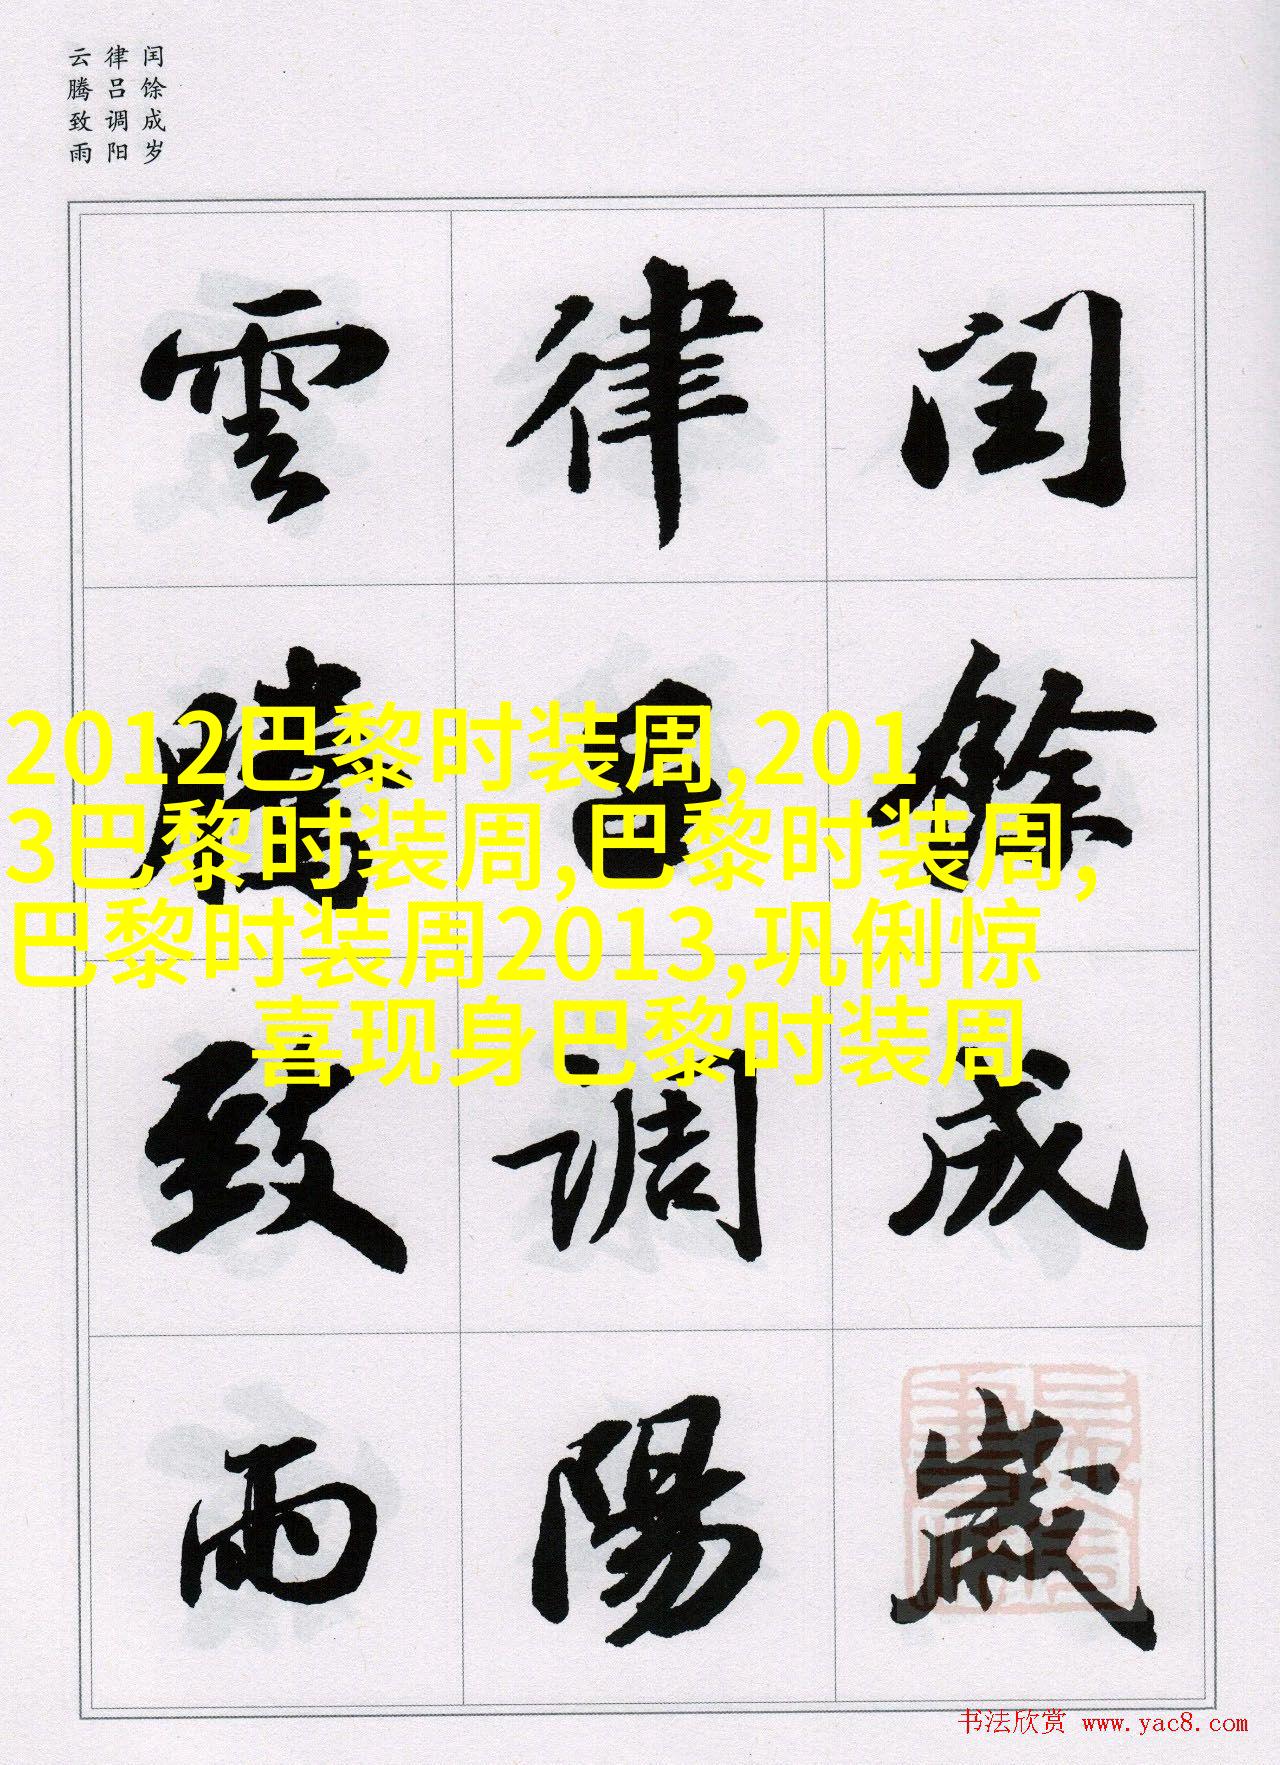 闰馀成岁
律吕调阳
云腾致雨
閏餘成歲
律吕調陽
雲騰致雨
2012巴黎时装周,201
3巴黎时装周,巴黎时装周,
巴黎时装周2013,巩俐惊
喜现身巴黎时装周
书法欣赏 www.yac8.com